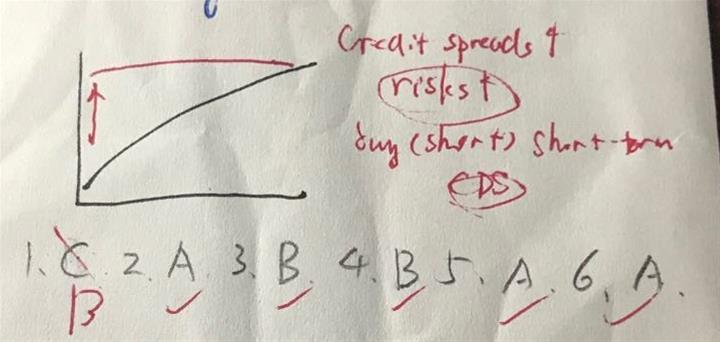 Credit spreads ↑
risks ↑
buy (short) short-term
CDS
1. C. 2. A. 3. B. 4. B 5. A. 6. A.
B